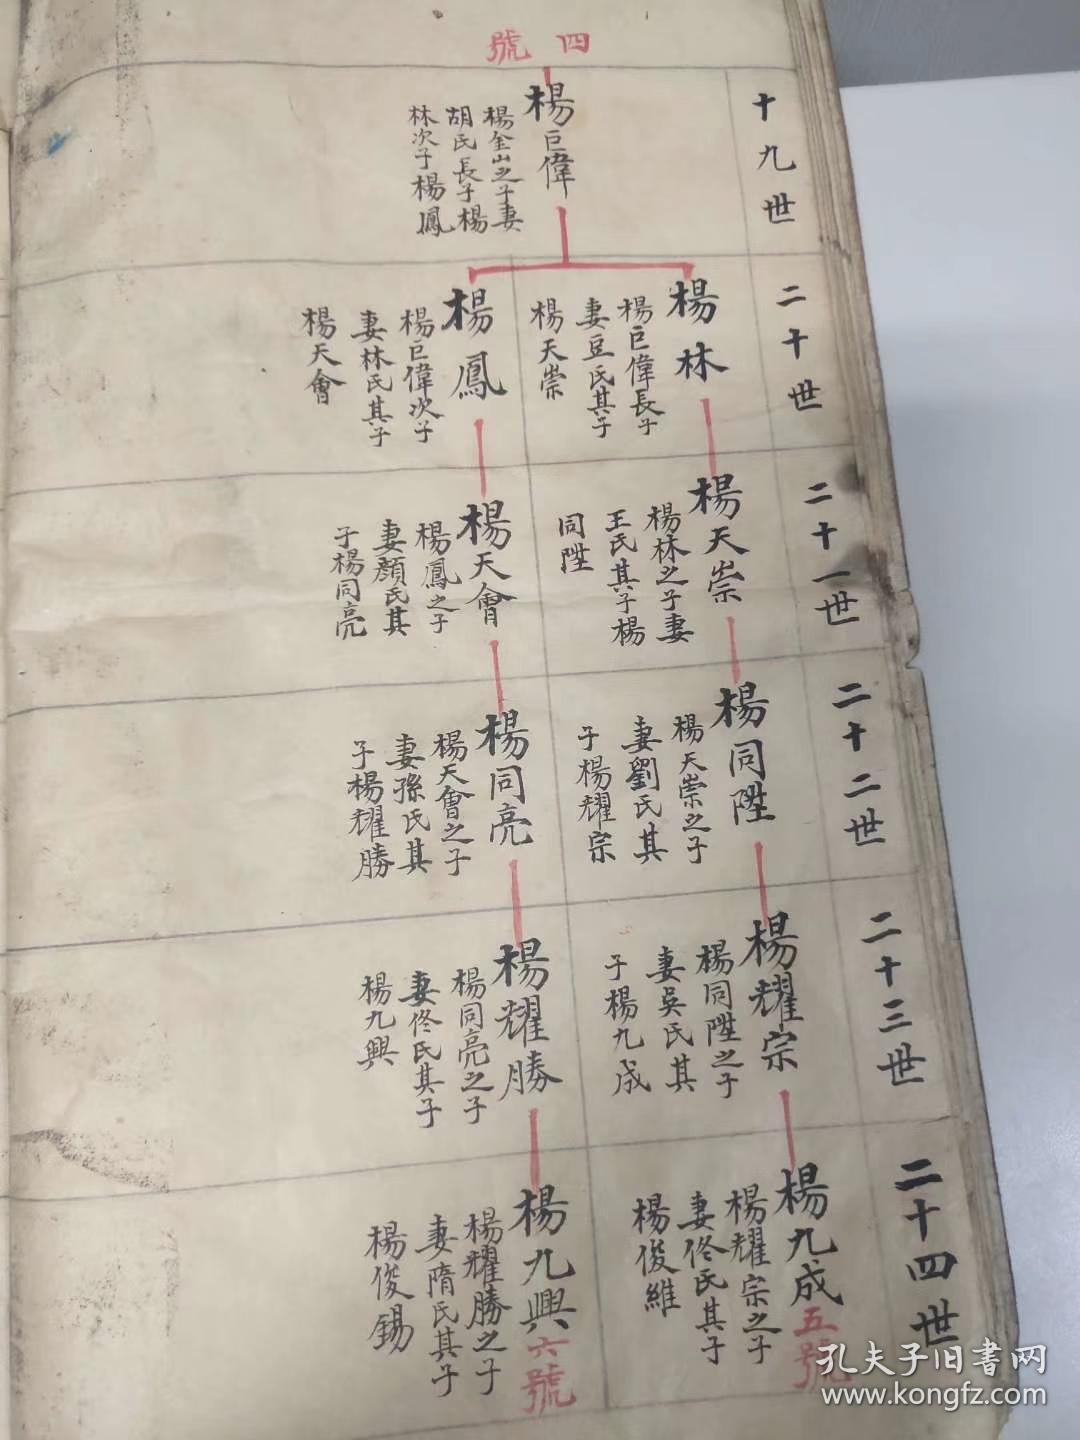 四號
十九世
楊巨偉
楊金山之子妻
胡氏長子楊
林次子楊鳳
二十世
楊林
楊巨偉長子
妻豆氏其子
楊天崇
楊鳳
楊巨偉次子
妻林氏其子
楊天會
二十一世
楊天崇
楊林之子妻
王氏其子楊
同陞
楊天會
楊鳳之子
妻顏氏其
子楊同亮
二十二世
楊同陞
楊天崇之子
妻劉氏其
子楊耀宗
楊同亮
楊天會之子
妻孫氏其
子楊耀勝
二十三世
楊耀宗
楊同陞之子
妻吳氏其
子楊九成
楊耀勝
楊同亮之子
妻佟氏其子
楊九興
二十四世
楊九成五號
楊耀宗之子
妻佟氏其子
楊俊維
楊九興六號
楊耀勝之子
妻隋氏其子
楊俊錫
孔夫子旧书网
www.kongfz.com